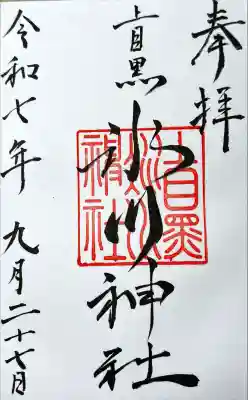 奉拝
上目黒氷川神社
上目黒氷川神社
令和七年九月二十七日